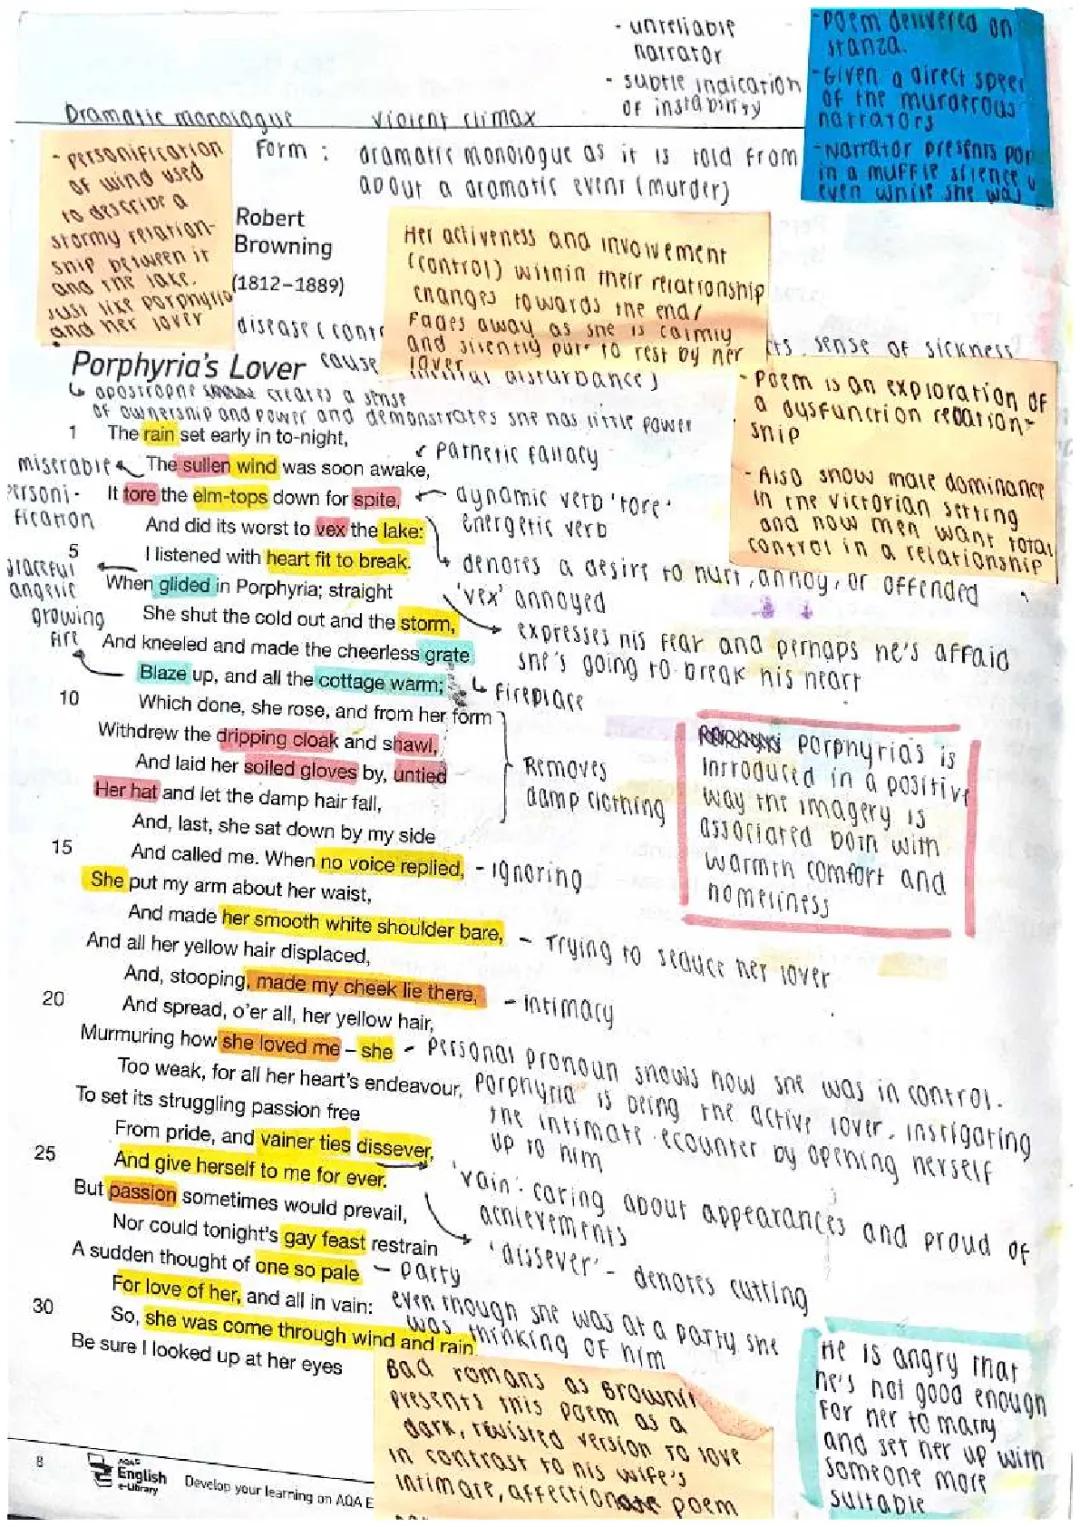 - unreliable
narrator
- subtle indication
of instability
- poem delivered on
stanza.
- Given a direct speec
of the murderous
narrators
- Narrator presents por
in a muffle silence
even while she was
Dramatic monologue violent climax
Form : dramatic monologue as it is told from
about a dramatic event (murder)
- personification
of wind used
to describe a
stormy relation-
ship between it
and the lake.
Just like porphyria
and her lover
Robert
Browning
(1812–1889)
Her activeness and involvement
(control) within their relationship
changes towards the end/
Fades away as she is calmly
and silently put to rest by her
lover
disease (
cause
ts sense of sickness
disturbance)
Porphyria's Lover
↳ apostrophe creates a sense
of ownership and power and demonstrates she has little power
- Poem is an exploration of
a dysfunction relation-
ship
- Also show male dominance
in the victorian setting
and how men want total
control in a relationship
1 The rain set early in to-night,
pathetic fallacy
miserable
The sullen wind was soon awake,
personi-
fication
It tore the elm-tops down for spite,
dynamic verb 'tore'
energetic verb
And did its worst to vex the lake:
5 I listened with heart fit to break.
denotes a desire to hurt, annoy, or offended
'vex' annoyed
graceful
angelic
When glided in Porphyria; straight
She shut the cold out and the storm,
expresses his fear and perhaps he's affraid
she's going to break his heart
growing
fire
And kneeled and made the cheerless grate
↳ fireplace
Blaze up, and all the cottage warm;
10 Which done, she rose, and from her form
Withdrew the dripping cloak and shawl,
And laid her soiled gloves by, untied
Her hat and let the damp hair fall,
Removes
damp clothing
Porphyria's is
introduced in a positive
way the imagery is
associated both with
warmth comfort and
homeliness
And, last, she sat down by my side
15 And called me. When no voice replied,
- Ignoring
She put my arm about her waist,
And made her smooth white shoulder bare,
- Trying to seduce her lover
And all her yellow hair displaced,
And, stooping, made my cheek lie there,
- Intimacy
20 And spread, o'er all, her yellow hair,
Murmuring how she loved me – she
- Personal pronoun shows how she was in control.
Porphyria is being the active lover, instigating
the intimate ecounter by opening herself
up to him
Too weak, for all her heart's endeavour,
To set its struggling passion free
From pride, and vainer ties dissever,
25 And give herself to me for ever.
'vain': caring about appearances and proud of
achievements
'dissever' - denotes cutting
But passion sometimes would prevail,
Nor could tonight's gay feast restrain
- party
A sudden thought of one so pale
For love of her, and all in vain:
even though she was at a party she
was thinking of him
30 So, she was come through wind and rain.
Be sure I looked up at her eyes
Bad romans as Browni
presents this poem as a
dark, twisted version to love
in contrast to his wife's
intimate, affectionate poem
He is angry that
he's not good enough
for her to marry
and set her up with
someone more
suitable
8
AQA
English
e-Library
Develop your learning on AQA E